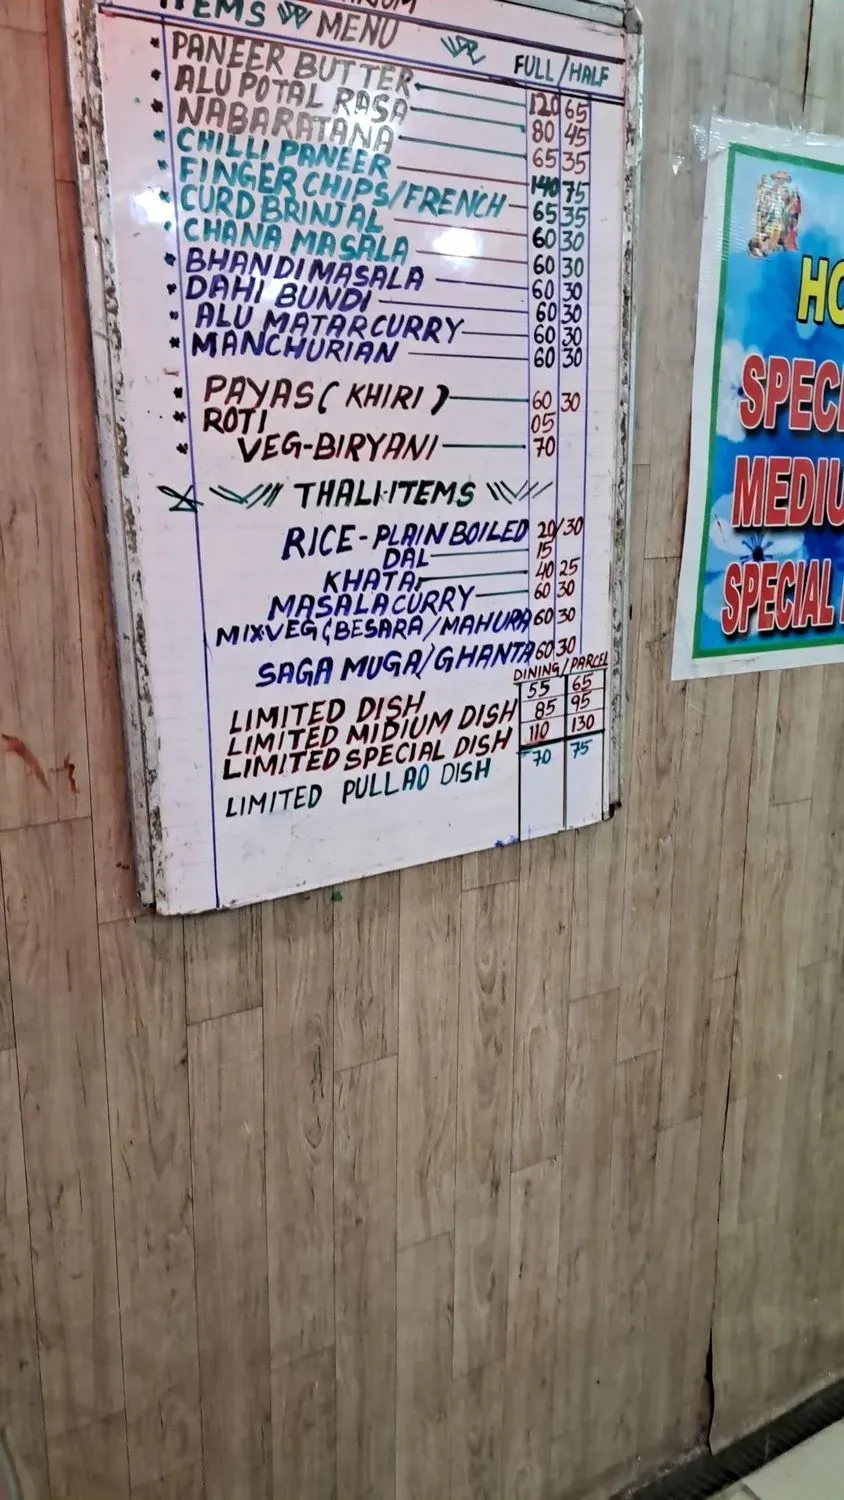 ITEMS MENU
FULL/HALF
* PANEER BUTTER 120 65
* ALU POTAL RASA 80 45
* NABARATANA 65 35
* CHILLI PANEER 140 75
* FINGER CHIPS/FRENCH 65 35
* CURD BRINJAL 60 30
* CHANA MASALA 60 30
* BHANDI MASALA 60 30
* DAHI BUNDI 60 30
* ALU MATAR CURRY 60 30
* MANCHURIAN 60 30
* PAYAS (KHIRI) 60 30
* ROTI 05
* VEG-BIRYANI 70
THALI ITEMS
RICE - PLAIN BOILED 20/30
DAL 15
KHATA 40 25
MASALA CURRY 60 30
MIXVEG (BESARA/MAHURA 60 30
SAGA MUGA/GHANTA 60 30
DINING/PARCEL
LIMITED DISH 55 65
LIMITED MIDIUM DISH 85 95
LIMITED SPECIAL DISH 110 130
LIMITED PULLAO DISH 70 75
HO
SPECI
MEDIU
SPECIAL